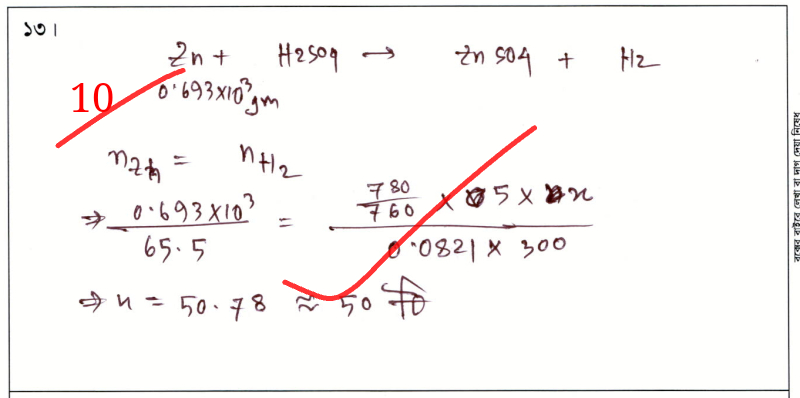 ১৩।
Zn + H2SO4 → ZnSO4 + H2
10
0.693×10³ gm
nZn = nH2
⇒ 0.693×10³ / 65.5 = 780/760 × 5 × n / 0.0821 × 300
⇒ n = 50.78 ≈ 50 টি
বক্সের বাইরে লেখা বা দাগ দেয়া নিষেধ